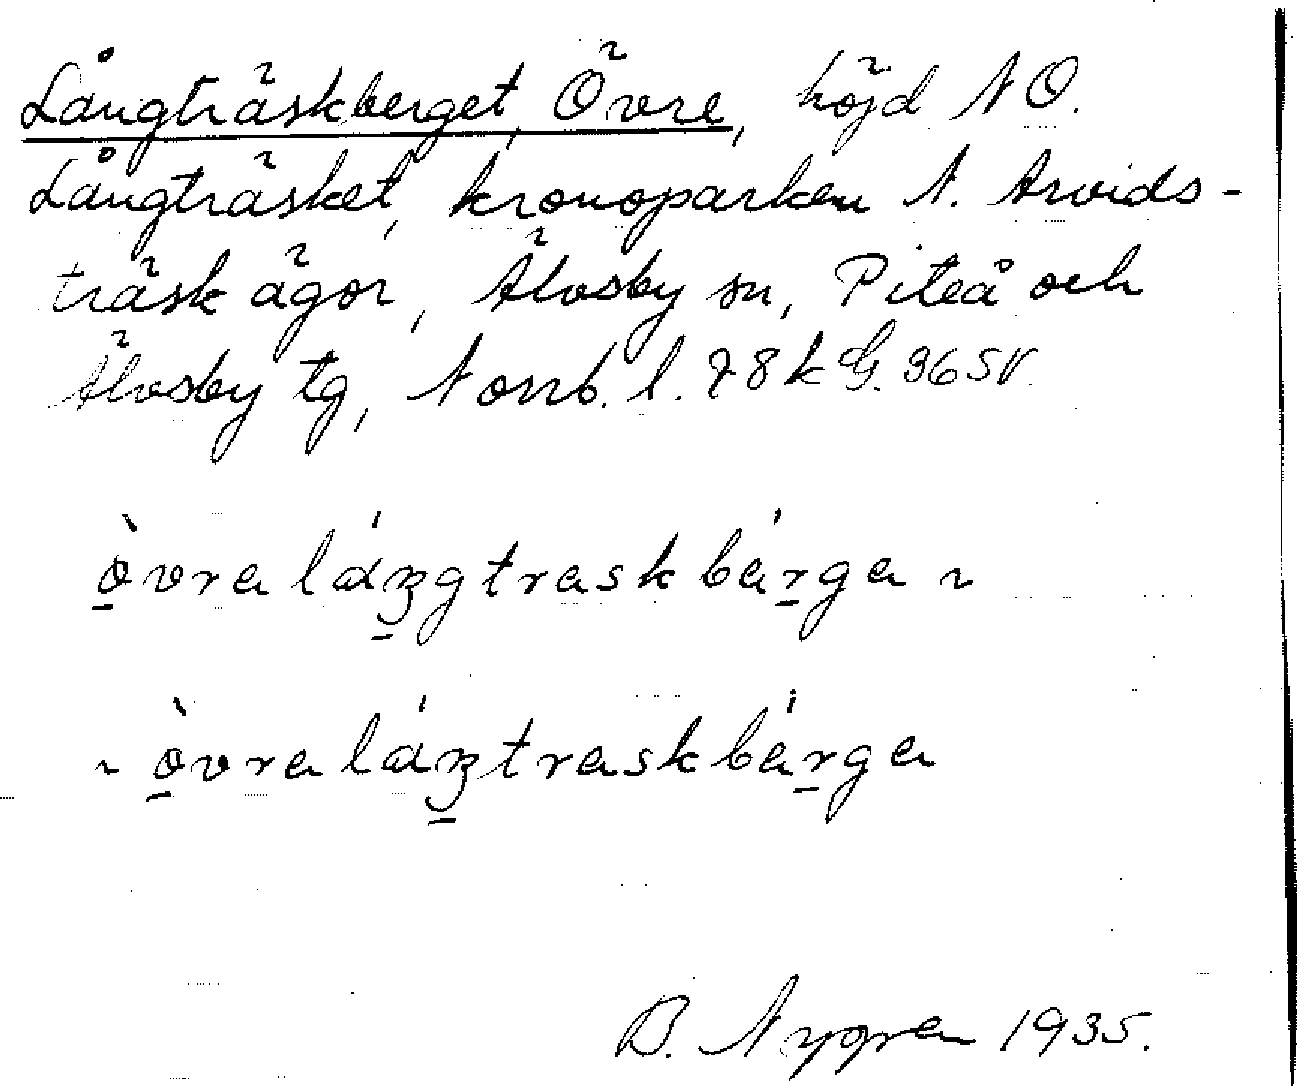 Långträskberget, Övre, höjd NO.
Långträsket, kronoparken N. Arvids-
träsk ägor, Älvsby sn, Piteå och
Älvsby tg, Norrb. l. 78 k G. 36 SV.
òvra láŋgtraskbárga ~
~ òvra láŋtraskbárga
B. Nygren 1935.